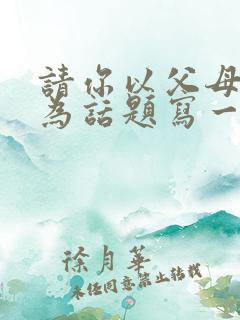 請你以父母
為話題寫一
徐月華
未经同意禁止转载